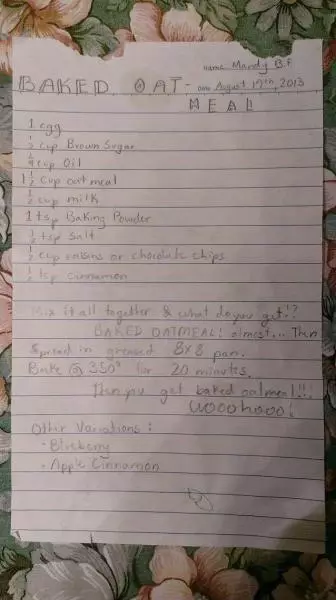 name Mandy B.F
BAKED OAT- Date August 17th, 2013
MEAL
1 egg
1/2 cup Brown Sugar
1/4 cup Oil
1 1/2 cup oatmeal
1/2 cup milk
1 tsp Baking Powder
1/2 tsp Salt
1/2 cup raisins or chocolate chips
1/2 tsp cinnamon
Mix it all together & what do you get!?
BAKED OATMEAL! almost... Then
Spread in greased 8x8 pan.
Bake @ 350° for 20 minutes.
Then you get baked oatmeal!!!
wooohooo!
Other Variations:
· Blueberry
· Apple Cinnamon